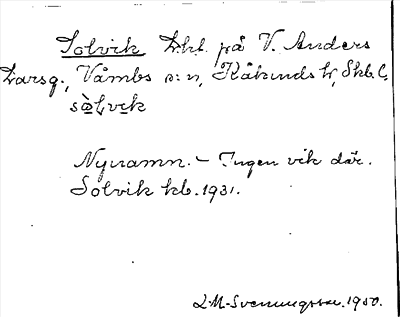 Solvik Lht. på V. Anders
Larsg., Våmbs sn, Kåkinds hd, Skb. l.
sòlvek
Nynamn. – Ingen vik där.
Solvik kb. 1931.
L-M. Svenungsson. 1950.